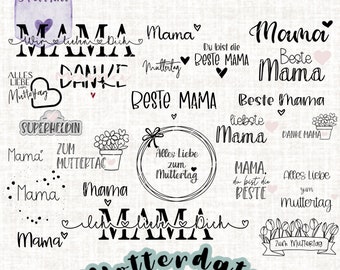 MAMA
Wir lieben Dich
Mama
Muttertag
Du bist die
BESTE MAMA
Mama
Beste
MAMA
ALLES
LIEBE
Muttertag
DANKE
BESTE MAMA
Beste Mama
SUPERHELDIN
liebste
Mama
DANKE MAMA
Mama
ZUM
MUTTERTAG
Alles Liebe
zum
Muttertag
MAMA,
du bist die
BESTE
Alles Liebe
zum
Muttertag
Mama
Mama
MAMA
Ich liebe Dich
Mama
Zum Muttertag